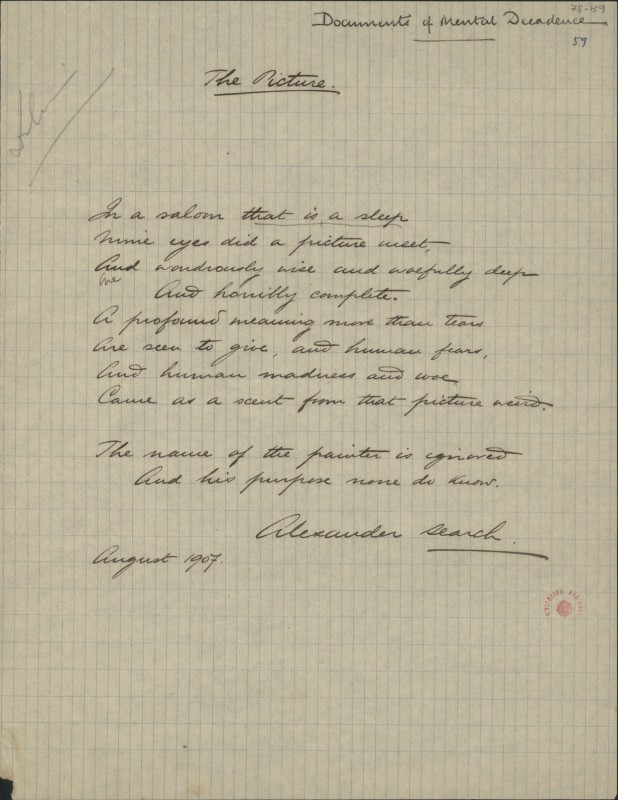 78-59
Documents of Mental Decadence
59
The Picture.
In a saloon that is a sleep
Mine eyes did a picture meet,
And wondrously wise and woefully deep
One
And horribly complete.
A profound meaning more than tears
Are seen to give, and human fears,
And human madness and woe
Came as a scent from that picture weird.
The name of the painter is ignored
And his purpose none do know.
Alexander Search.
August 1907.